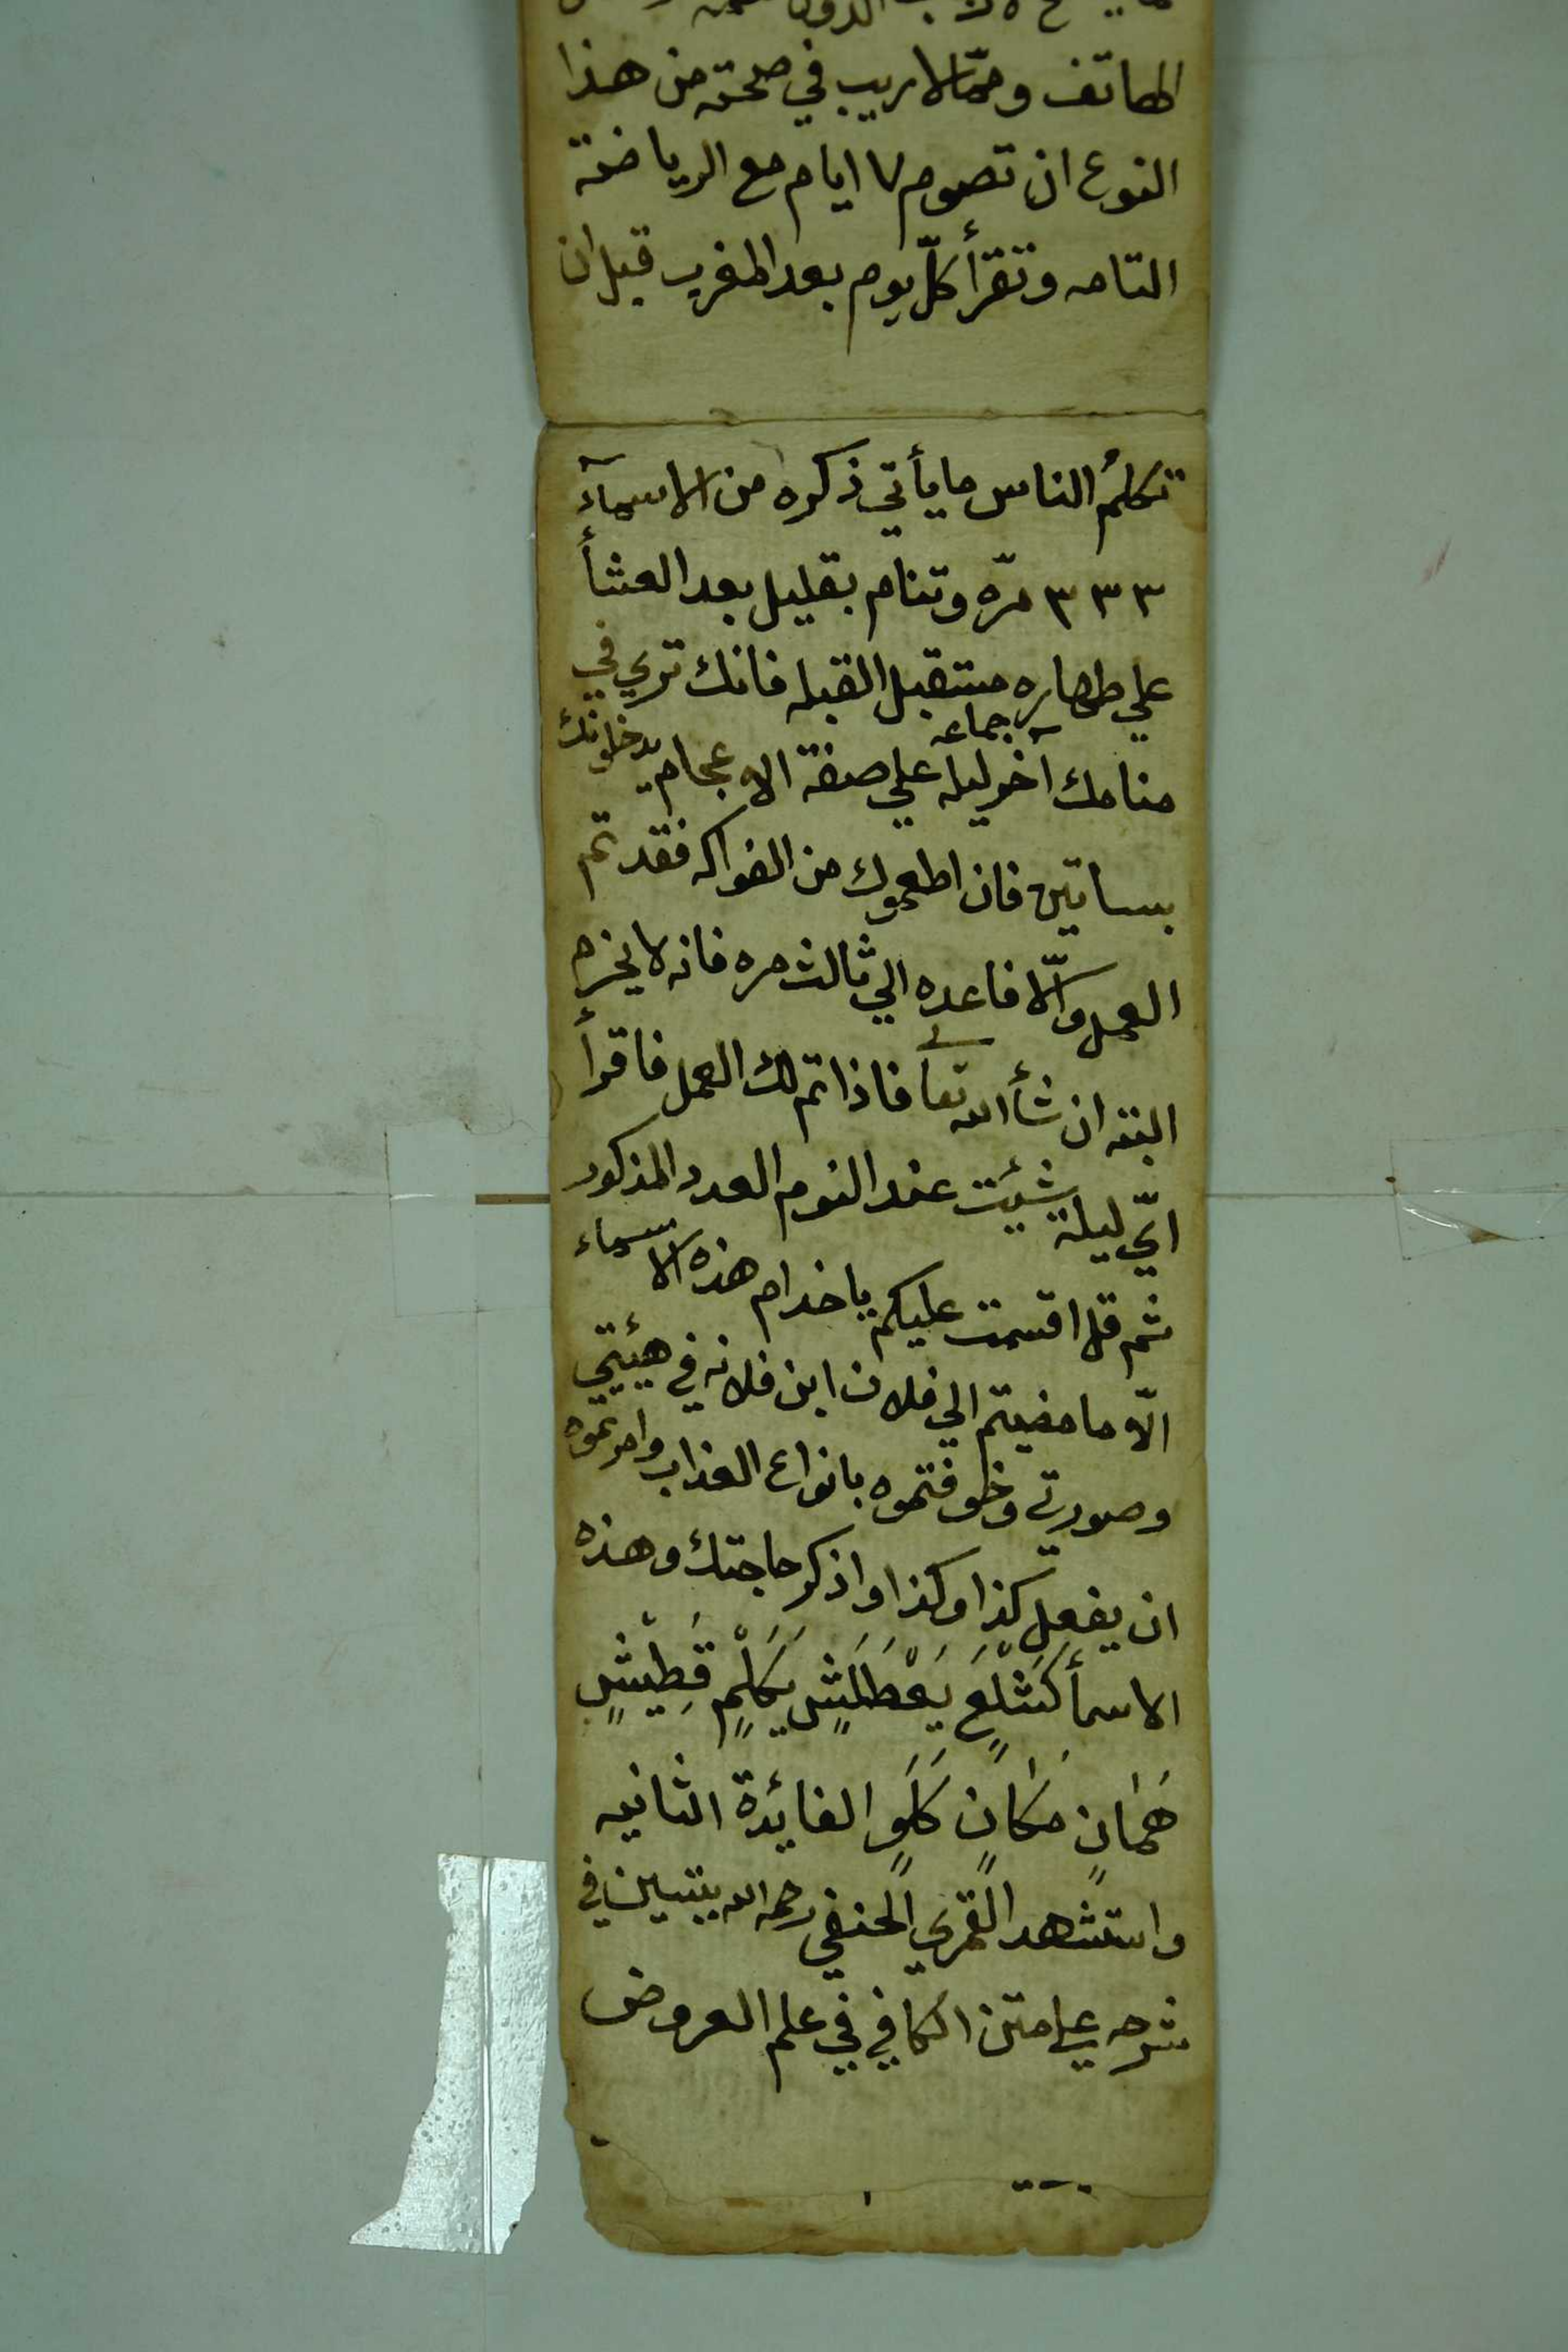 الهاتف وممّا لا ريب في صحته من هذا
النوع ان تصوم ٧ ايام مع الرياضة
التامه وتقرأ كلّ يوم بعد المغرب قبل ان
تكلم الناس ما يأتي ذكره من الاسمآء
٣٣٣ مرّه وتنام بقليل بعد العشأ
علي طهاره مستقبل القبله فانك تري في
منامك آخر ليله جماعه علي صفة الاعجام يدخلونك
بساتين فان اطعموك من الفواكه فقد تم
العمل والّا فاعده الي ثالث مره فانه لا يخرم
البته ان شأ الله تعا فاذا تم لك العمل فاقرأ
ايّ ليلة شئيت عند النوم العدد المذكور
ثم قل اقسمت عليكم يا خدام هذه الاسماء
الّا ما مضيتم الي فلان ابن فلانه في هيئتي
وصورتي وخوفتموه بانواع العذاب وامرتموه
ان يفعل كذا وكذا واذكر حاجتك وهذه
الاسمأ كَشْلَعٍ يَعْطَلَشٍ يَكَلْمٍ قَطِيْشٍ
هَمَانٍ مَكَانٍ كَلَوٍ الفائدة الثانيه
واستشهد القمري الحنفي رحمه الله ببيتين في
شرحه علي متن الكافي في علم العروض